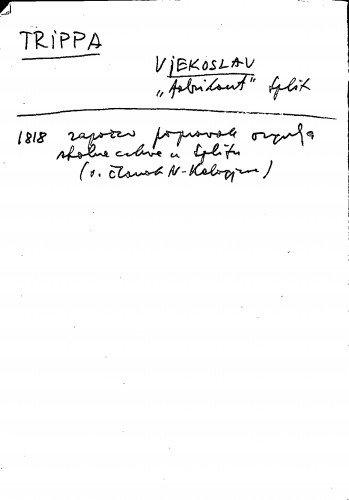 TRIPPA
VJEKOSLAV
„fabrikant" Split
1818 započeo popravak orgulja
stolne crkve u Splitu
(v. članak N. Kalogjera)